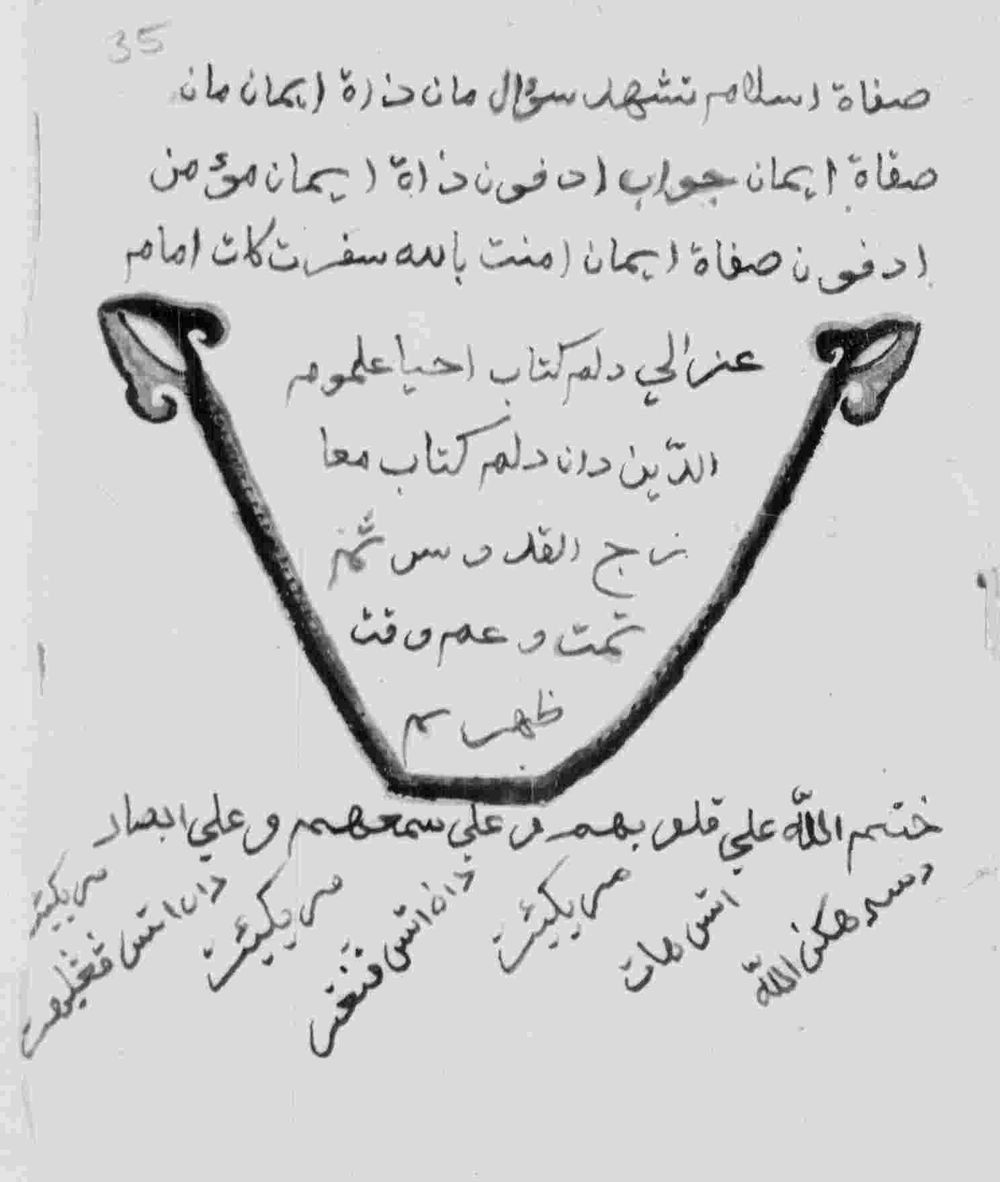 35
صفاة اسلام تشهد سؤال مان ذرة ايمان مان
صفاة ايمان جواب ادفون ذاة ايمان مؤمن
ادفون صفاة ايمان امنت بالله سفرت كات امام
عزالي دلم كتاب احيا علموم
الدّين دان دلم كتاب معا
رج القدوس
تمت و عم وقت
ظهر
ختم الله علي قلو بهم و علي سمعهم و علي ابصار
هكن اللّه
اتس هات
مريكئت
دان اتس فنڠر
مريكئت
دان اتس فڠليهت